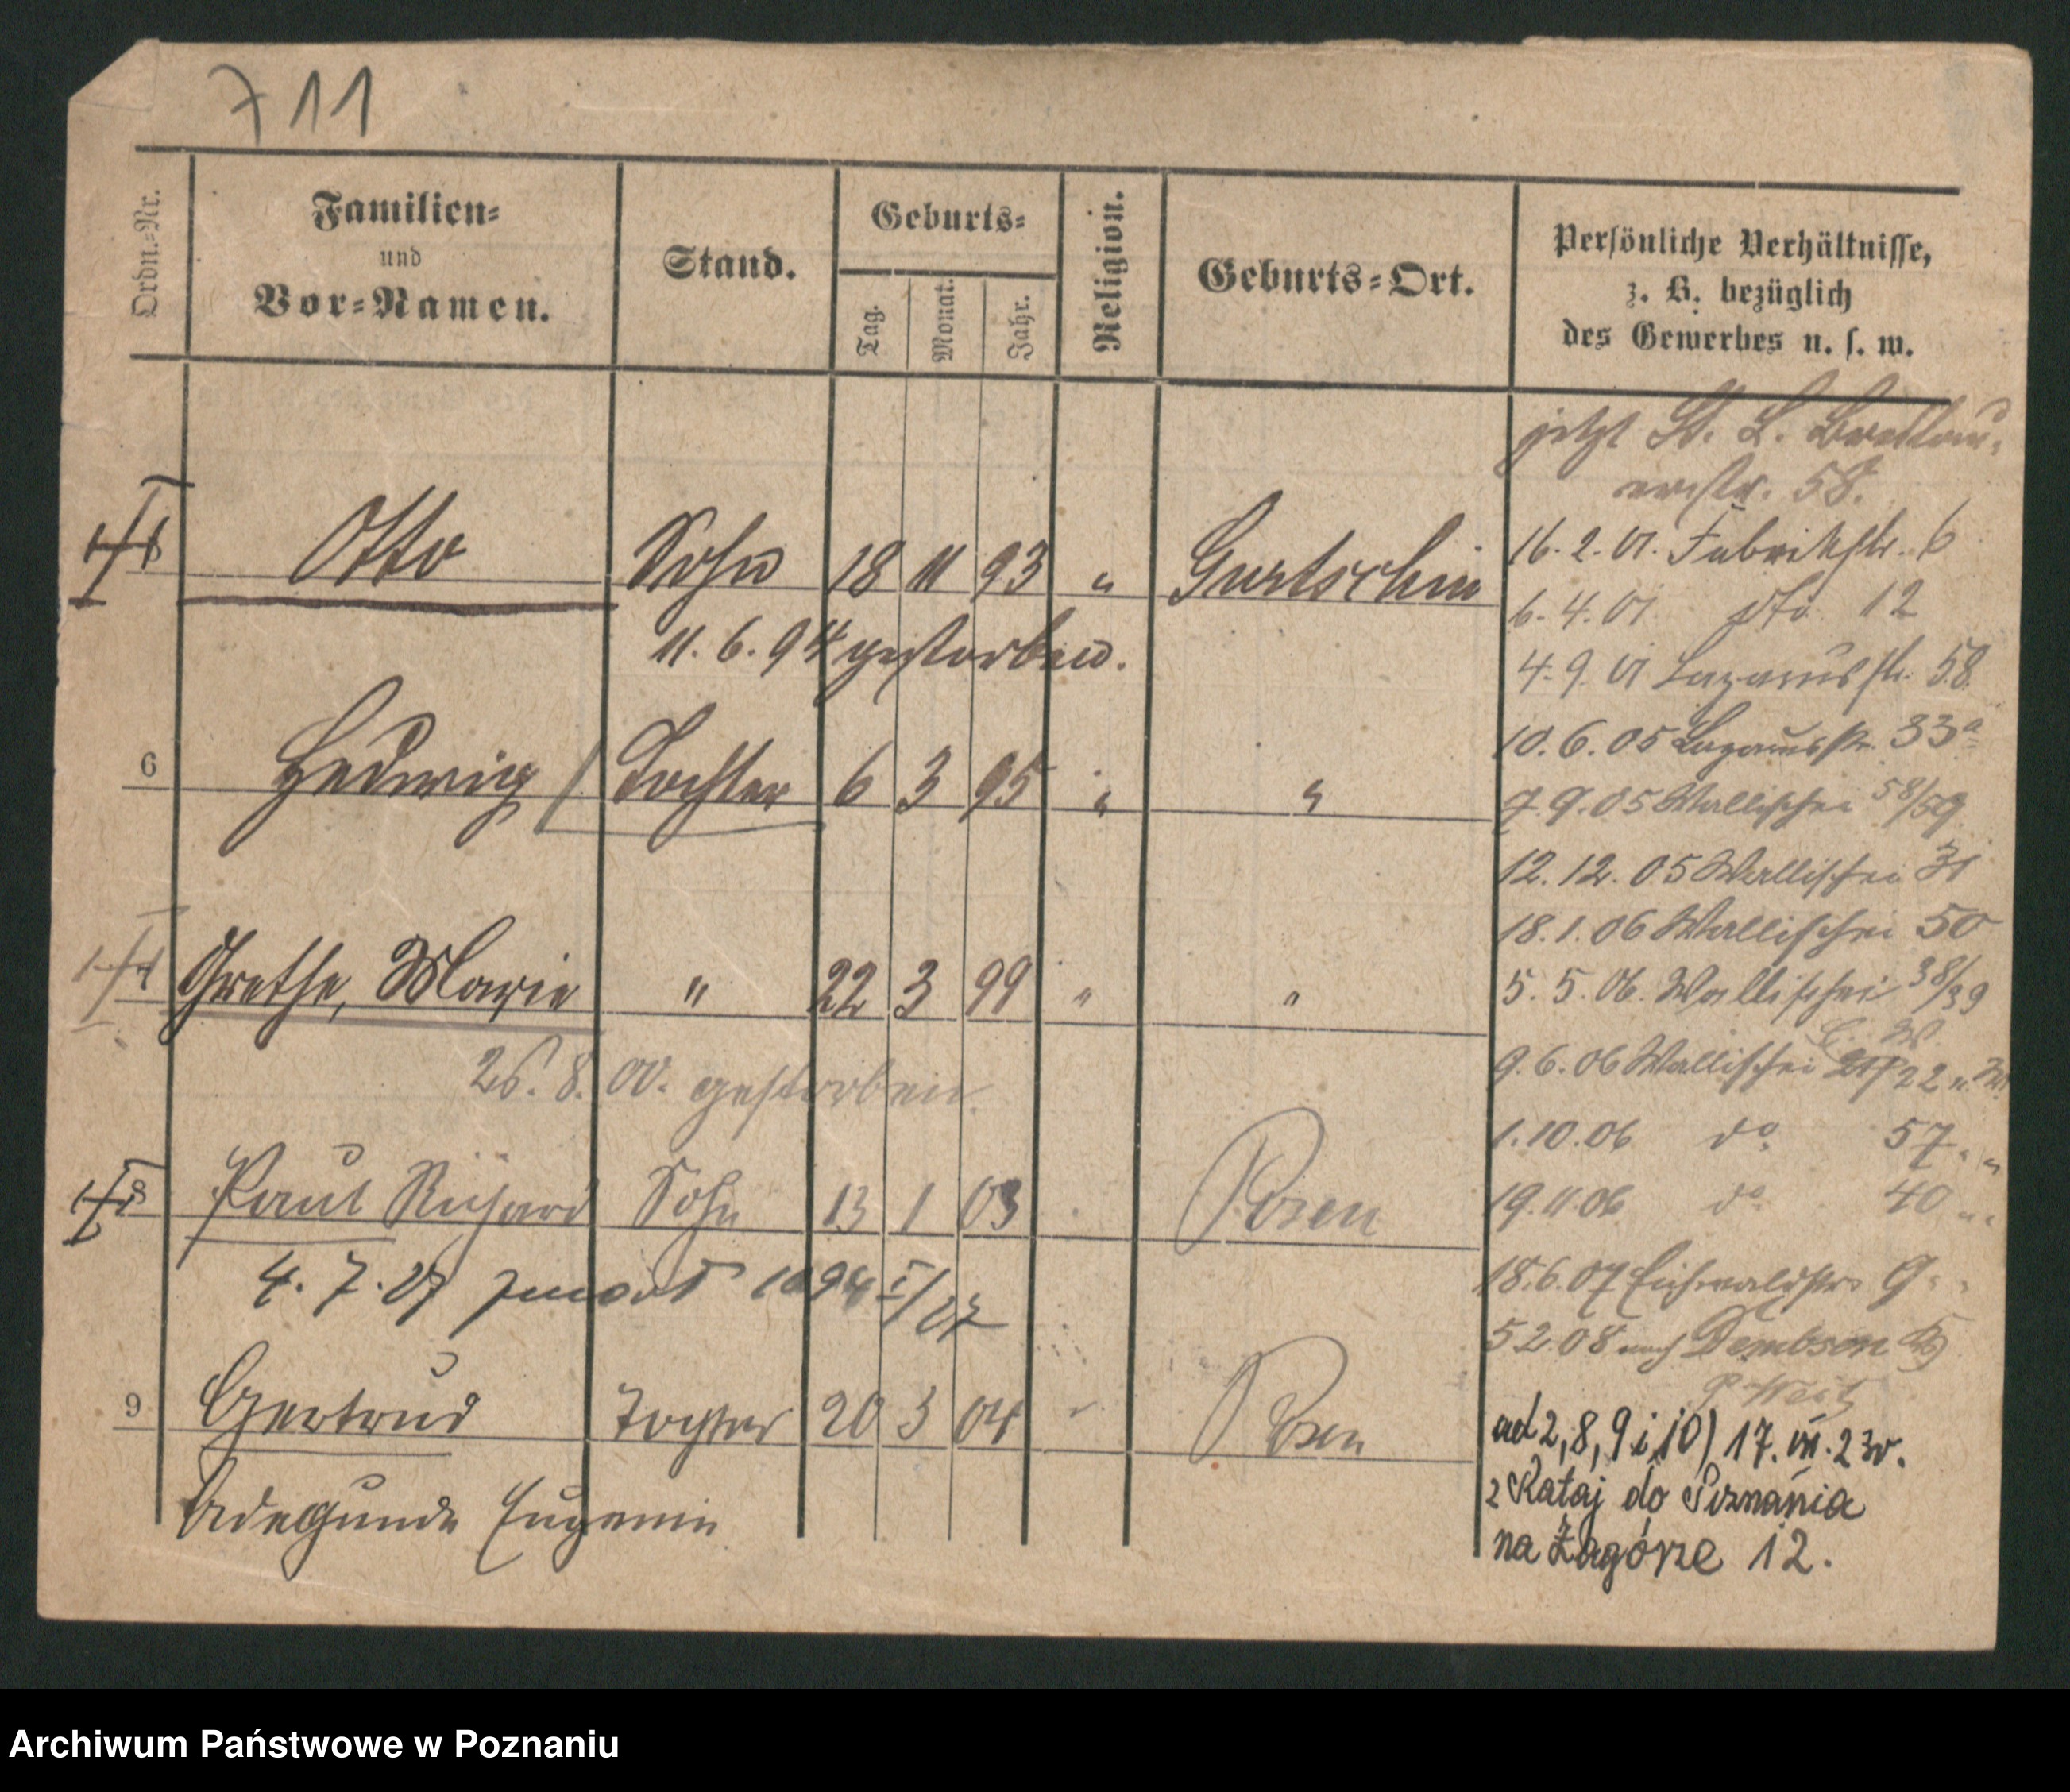 711
Ordn.-Nr.
Familien-
und
Vor-Namen.
Stand.
Geburts-
Tag.
Monat.
Jahr.
Religion.
Geburts-Ort.
Persönliche Verhältnisse,
z. B. bezüglich
des Gewerbes u. s. w.
jetzt St. L. Breslau-
erstr. 58.
Otto Sohn 18 11 93 " Gurtschin
11. 6. 94 gestorben.
16. 2. 01. Fabrikstr. 6
6. 4. 01. dto 12
4. 9. 01 Lazarusstr. 58
6 Hedwig Tochter 6 3 95 " "
10. 6. 05 Lazarusstr. 33a
7. 9. 05 Wallischei 58/59
12. 12. 05 Wallischei 31
18. 1. 06 Wallischei 50
Grethe, Marie " 22 3 99 " "
26. 8. 00. gestorben.
5. 5. 06. Wallischei 38/39
9. 6. 06 Wallischei 22
1. 10. 06 do 57 " "
8 Paul Richard Sohn 13 1 03 Posen
19. 11. 06 do 40 " "
4. 7. 27 I/27
18. 6. 07 Eichwaldstr. 9 "
5 2. 08 nach Dembsen
9 Gertrud Tochter 20 3 04 " Posen
Adegunde Eugenie
ad 2, 8, 9 i 10) 17. VII. 23 r.
z Rataj do Poznania
na Zagórze 12.
Archiwum Państwowe w Poznaniu